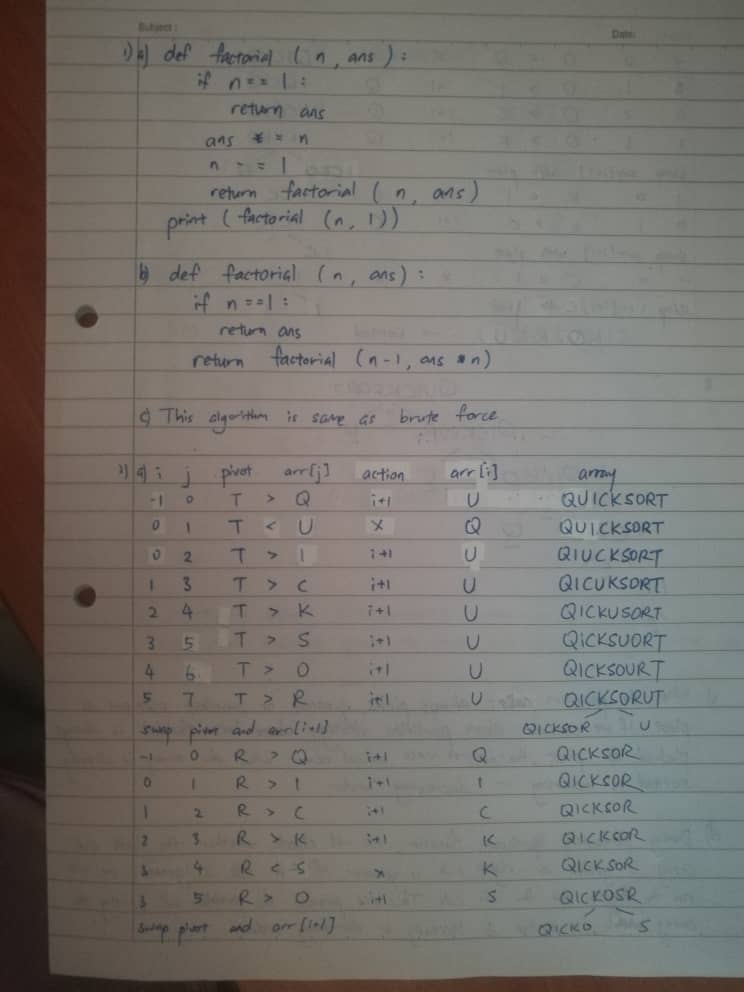 Subject:
Date:
1) a) def factorial (n, ans):
if n == 1:
return ans
ans *= n
n -= 1
return factorial (n, ans)
print (factorial (n, 1))
b) def factorial (n, ans):
if n==1:
return ans
return factorial (n-1, ans * n)
c) This algorithm is same as brute force
2) a) i j pivot arr[j] action arr[i] array
-1 0 T > Q i+1 U QUICKSORT
0 1 T < U x Q QUICKSORT
0 2 T > I i+1 U QIUCKSORT
1 3 T > C i+1 U QICUKSORT
2 4 T > K i+1 U QICKUSORT
3 5 T > S i+1 U QICKSUORT
4 6 T > O i+1 U QICKSOURT
5 7 T > R i+1 U QICKSORUT
swap pivot and arr[i+1] QICKSOR U
-1 0 R > Q i+1 Q QICKSOR
0 1 R > I i+1 I QICKSOR
1 2 R > C i+1 C QICKSOR
2 3 R > K i+1 K QICKSOR
3 4 R < S x K QICKSOR
3 5 R > O i+1 S QICKOSR
swap pivot and arr[i+1] QICKO S